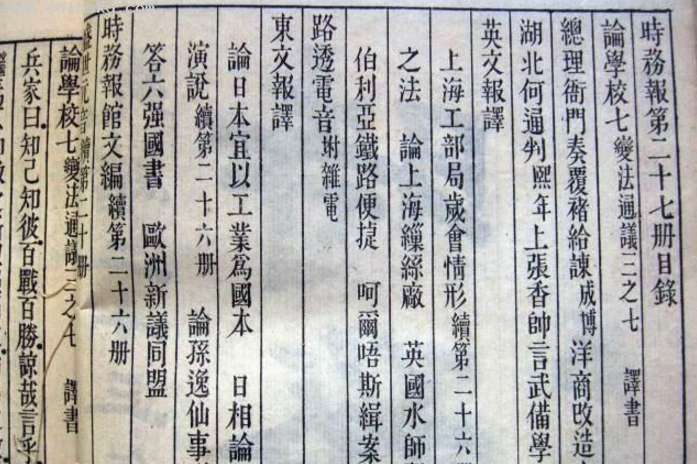 時務報第二十七册目錄
論學校七 變法通議三之七 譯書
總理衙門奏覆褚給諫成博洋商改造
湖北何通判熙年上張香帥言武備學
英文報譯
上海工部局歲會情形 續第二十六
之法 論上海繅絲廠 英國水師
伯利亞鐵路便捷 呵爾唔斯緝案
路透電音 坿雜電
東文報譯
論日本宜以工業爲國本 日相論
演說 續第二十六册 論孫逸仙事
答六强國書 歐洲新議同盟
時務報館文編 續第二十六册
盛世元音 續第二十册
論學校七 變法通議三之七 譯書
兵家曰知己知彼百戰百勝諒哉言乎
.com